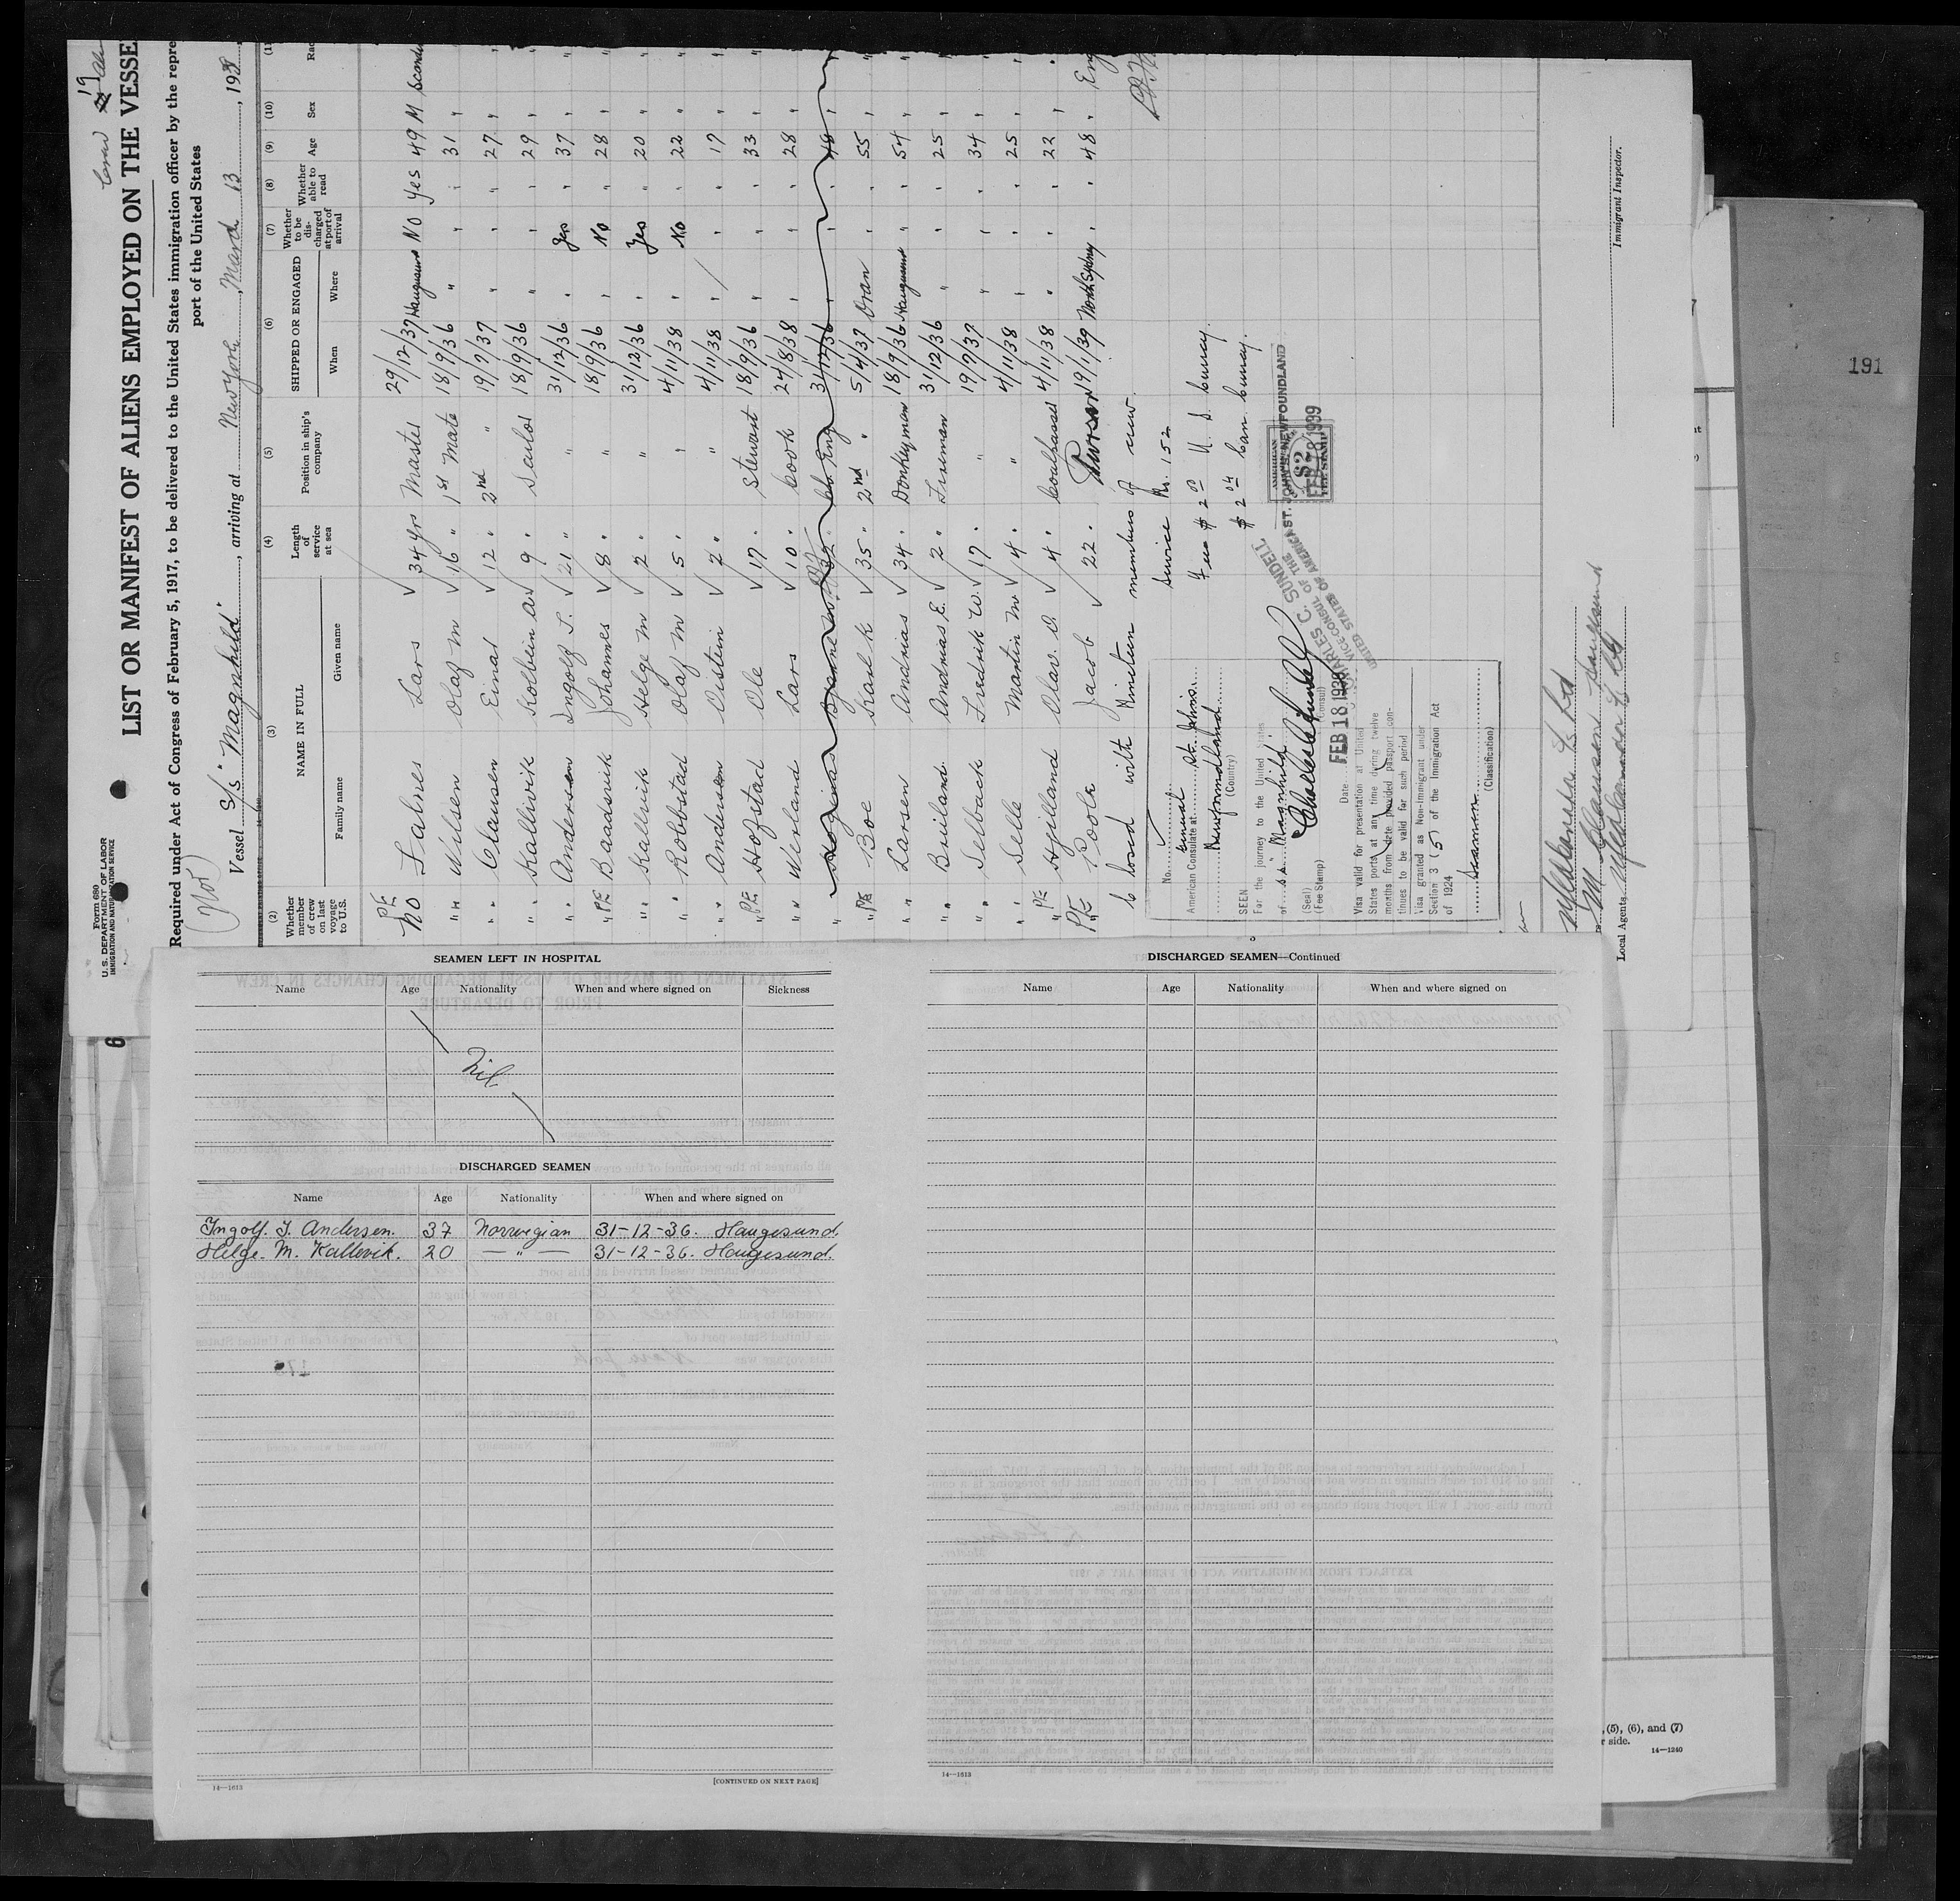 Form 680
U. S. DEPARTMENT OF LABOR
IMMIGRATION AND NATURALIZATION SERVICE
LIST OR MANIFEST OF ALIENS EMPLOYED ON THE VESSE
Required under Act of Congress of February 5, 1917, to be delivered to the United States immigration officer by the repre
port of the United States
Vessel S/S "Magnhild", arriving at New York March 13, 193
(2) (3) (4) (5) (6) (7) (8) (9) (10)
Whether member of crew on last voyage to U.S. NAME IN FULL Length of service at sea Position in ship's company SHIPPED OR ENGAGED Whether to be discharged at port of arrival Whether able to read Age Sex
Family name Given name When Where
No Falnes Lars 34 yrs Master 29/12/37 Haugesund No Yes 49 M
" " Nilsen Olaf M 16 " 1st Mate 18/9/36 " " " 31 "
" " Clausen Einar 12 " 2nd " 19/7/37 " " " 27 "
" " Kallevik Kolbein A 9 " Sailor 18/9/36 " " " 29 "
" " Andersen Ingolf T. 21 " " 31/12/36 " Yes " 37 "
" PE Baadsvik Johannes 8 " " 18/9/36 " No " 28 "
" " Kallevik Helge M 2 " " 31/12/36 " Yes " 20 "
" " Robbstad Olaf M 5 " " 4/11/38 " No " 22 "
" " Andersen Oistein 2 " " 4/11/38 " " " 17 "
" PE Hofstad Ole 17 " Stewart 18/9/36 " " " 33 "
" " Nerland Lars 10 " Cook 24/8/38 " " " 28 "
" 31/12/36 " " " 48 "
" PE Boe Karl K 35 " 2nd " 5/4/37 Oran " " 55 "
" " Larsen Andrias 34 " Donkeyman 18/9/36 Haugesund " " 54 "
" " Builand Andrias E. 2 " Fireman 31/12/36 " " " 25 "
" " Selback Fredrik W. 17 " " 19/7/37 " " " 34 "
" " Selle Martin M 4 " " 4/11/38 " " " 25 "
" PE Hjilland Olav. O. 4 " Coalpasser 4/11/38 " " " 22 "
PE " Poole Jacob 22 " Purser 19/1/39 North Sydney " " 48 " Eng
is bound with Nineteen members of crew.
Service Nr. 152
Fee $ 2.00 U. S. curncy.
$ 2.04 Can. curncy.
No.
American Consulate General at St. Johns.
Newfoundland
(Country)
SEEN
For the journey to the United States
of s.s. "Magnhild"
(Seal)
(Fee Stamp)
(Consul)
Date FEB 18 1939
Visa valid for presentation at United
States ports at any time during twelve
months from date provided passport con-
tinues to be valid for such period
Visa granted as Non-immigrant under
Section 3 (5) of the Immigration Act
of 1924
Seaman
(Classification)
CHARLES C. SUNDELL
VICE CONSUL OF THE
UNITED STATES OF AMERICA
ST. JOHN'S, NEWFOUNDLAND
AMERICAN
$2
FEE STAMP
Local Agents
Immigrant Inspector.
191
SEAMEN LEFT IN HOSPITAL
Name Age Nationality When and where signed on Sickness
Nil
DISCHARGED SEAMEN
Name Age Nationality When and where signed on
Ingolf. T. Andersen. 37 Norwegian 31-12-36. Haugesund.
Helge. M. Kallevik. 20 — " — 31-12-36. Haugesund.
14—1613
[CONTINUED ON NEXT PAGE]
DISCHARGED SEAMEN—Continued
Name Age Nationality When and where signed on
14—1613
, (5), (6), and (7)
r side.
14—1240